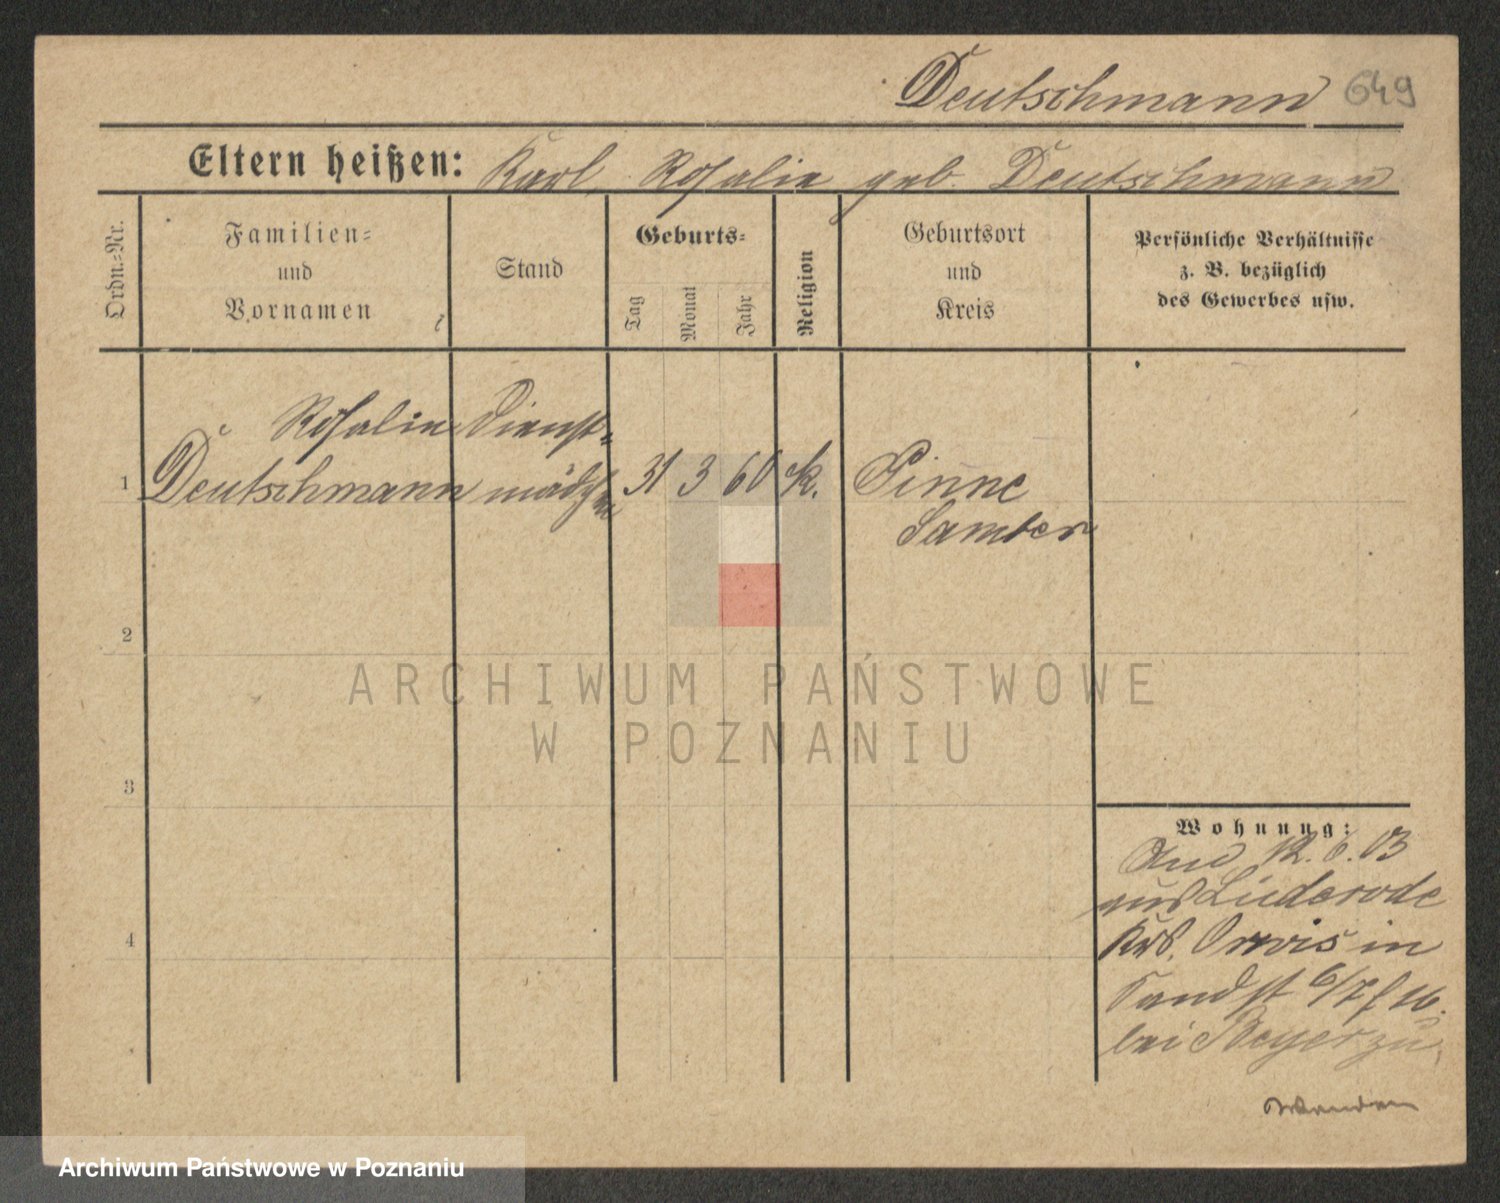 Deutschmann 649
Eltern heißen: Karl, Rosalie geb. Deutschmann
Ordn.-Nr.
Familien-
und
Vornamen
Stand
Geburts-
Tag
Monat
Jahr
Religion
Geburtsort
und
Kreis
Persönliche Verhältnisse
z. B. bezüglich
des Gewerbes usw.
Rosalie Dienst-
1 Deutschmann mädchen 31 3 60 k. Pinne
Samter
2
3
4
Wohnung:
12.6.03
aus Lüderode
Krs. in
6/7 16.
bei Beyer zu.
Wenden
ARCHIWUM PAŃSTWOWE
W POZNANIU
Archiwum Państwowe w Poznaniu